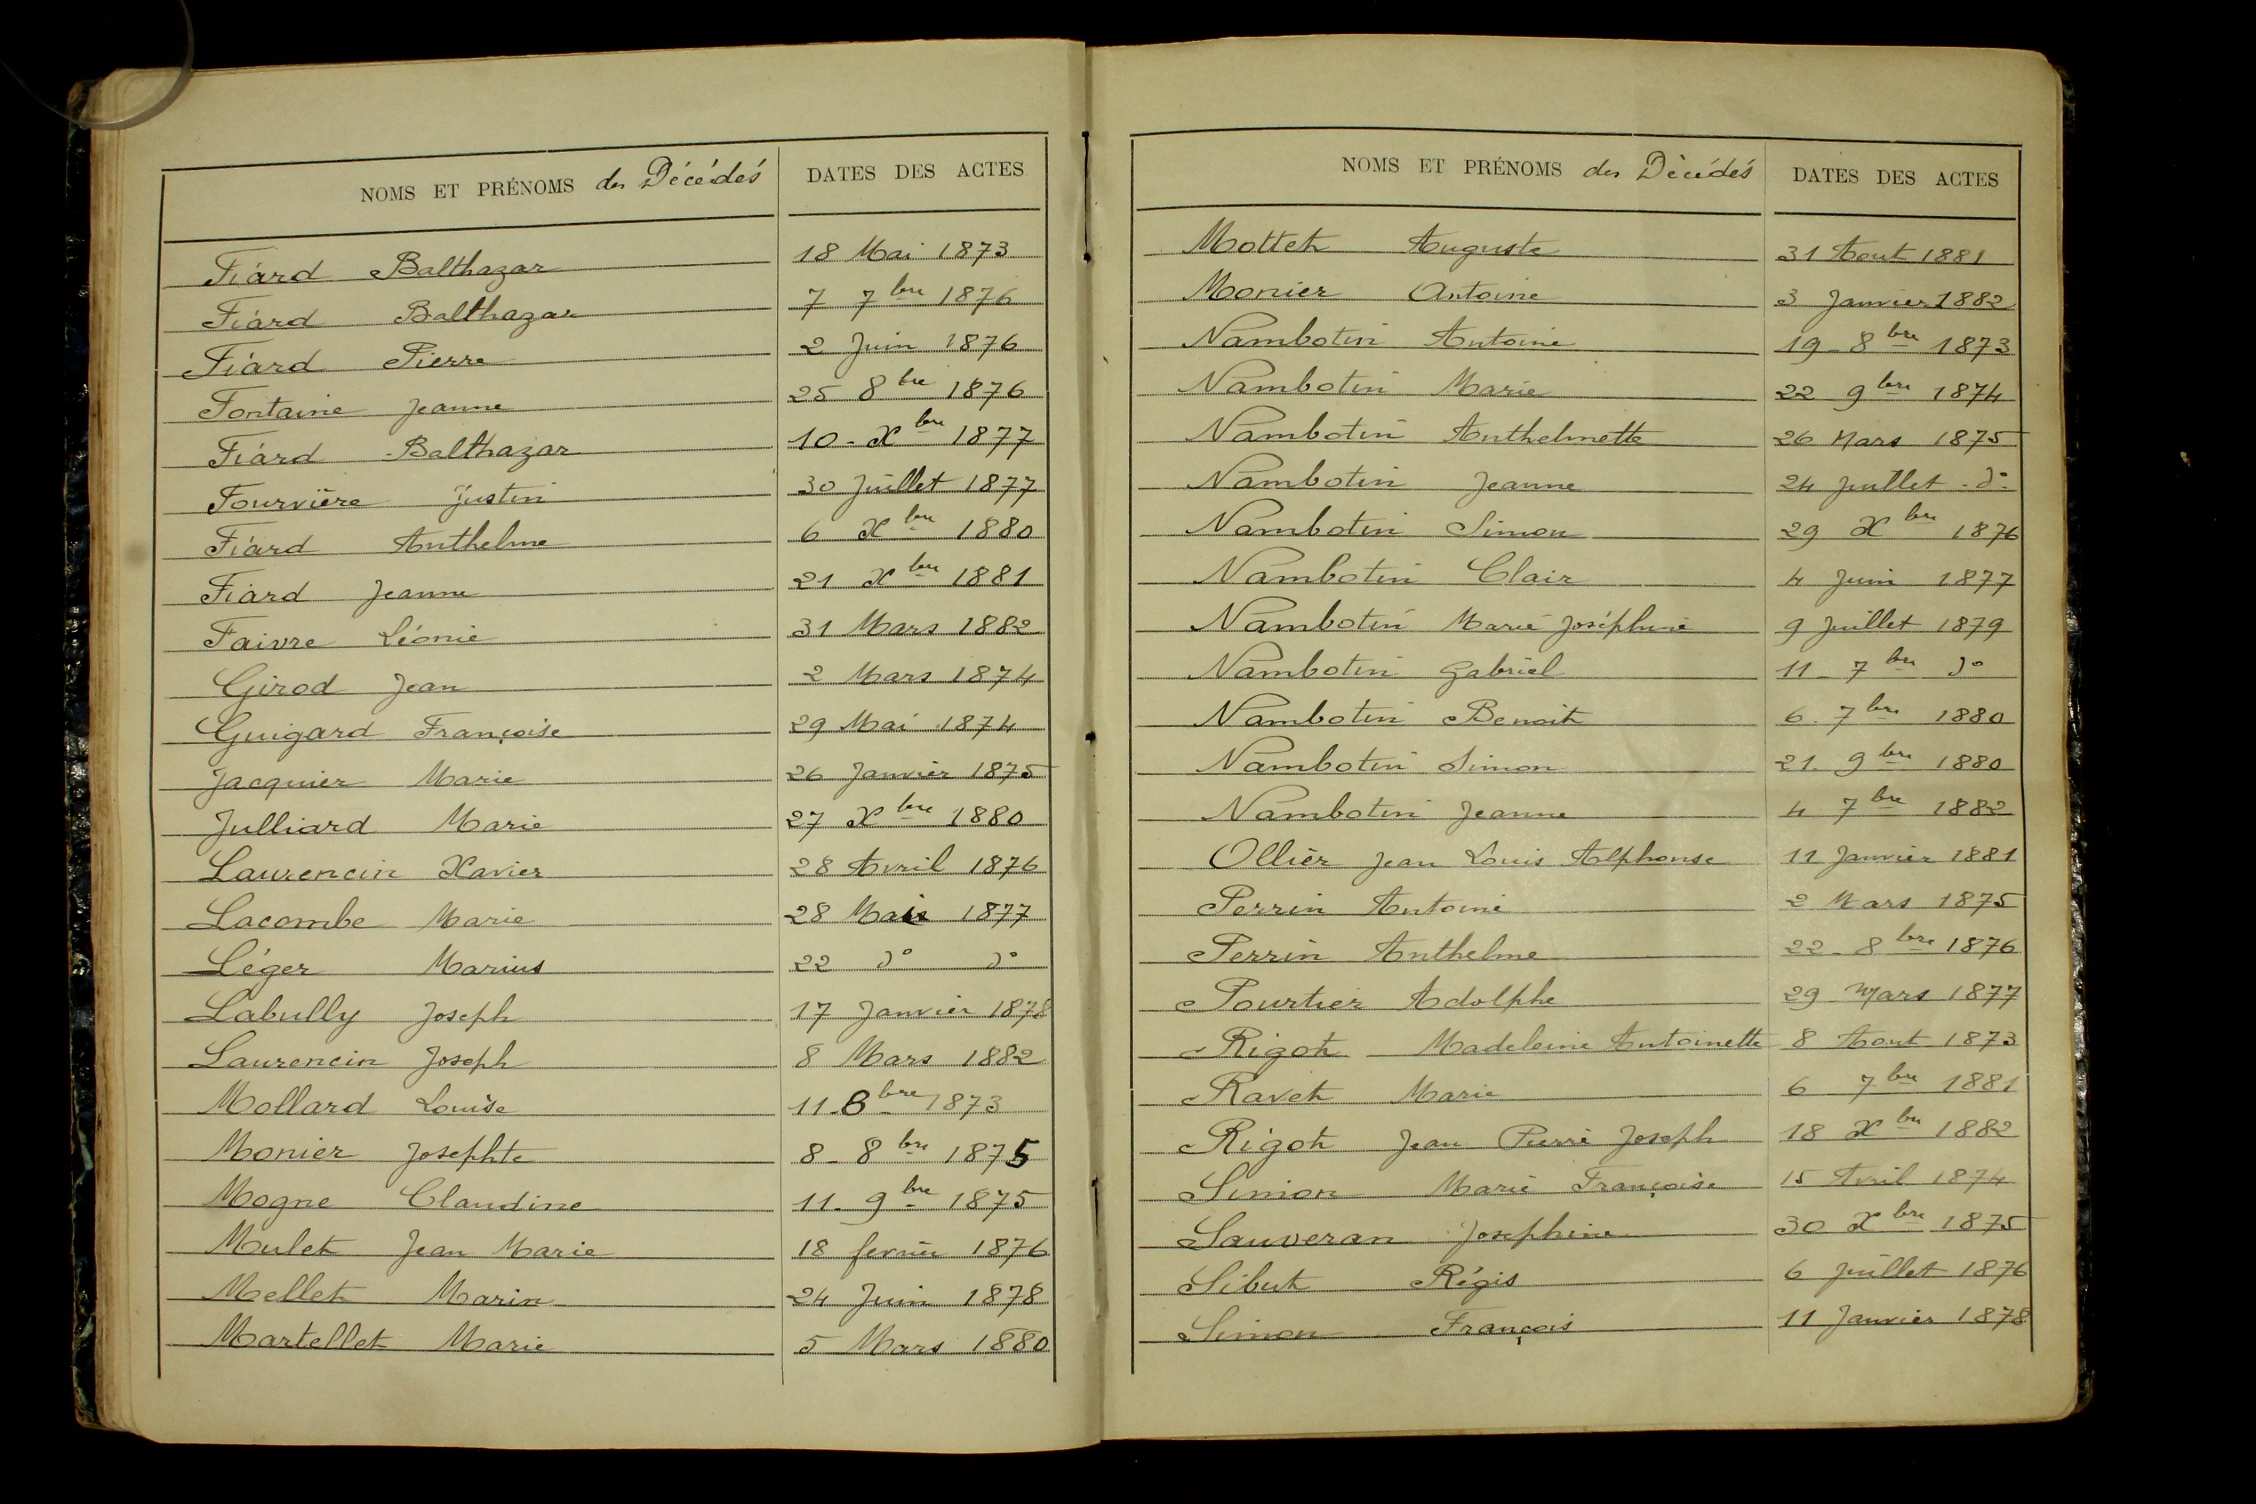 NOMS ET PRÉNOMS des Décédés DATES DES ACTES
Fiard Balthazar 18 Mai 1873
Fiard Balthazar 7 7bre 1876
Fiard Pierre 2 Juin 1876
Fontaine Jeanne 25 8bre 1876
Fiard Balthazar 10 - Xbre 1877
Fourvière Justin 30 Juillet 1877
Fiard Anthelme 6 Xbre 1880
Fiard Jeanne 21 Xbre 1881
Faivre Léonie 31 Mars 1882
Girod Jean 2 Mars 1874
Guigard Françoise 29 Mai 1874
Jacquier Marie 26 Janvier 1875
Julliard Marie 27 Xbre 1880
Laurencin Xavier 28 Avril 1876
Lacombe Marie 28 Mai 1877
Léger Marius 22 do do
Labully Joseph 17 Janvier 1878
Laurencin Joseph 8 Mars 1882
Mollard Louise 11 - 8bre 1873
Monier Josephte 8 - 8bre 1875
Mogne Claudine 11 - 9bre 1875
Mulet Jean Marie 18 fevrier 1876
Mellet Marin 24 Juin 1878
Martellet Marie 5 Mars 1880
NOMS ET PRÉNOMS des Décédés DATES DES ACTES
Mottet Auguste 31 Aout 1881
Monier Antoine 3 Janvier 1882
Nambotin Antoine 19 - 8bre 1873
Nambotin Marie 22 9bre 1874
Nambotin Anthelmette 26 Mars 1875
Nambotin Jeanne 24 Juillet - do -
Nambotin Simon 29 Xbre 1876
Nambotin Clair 4 Juin 1877
Nambotin Marie Joséphine 9 Juillet 1879
Nambotin Gabriel 11 - 7bre do
Nambotin Benoit 6 - 7bre 1880
Nambotin Simon 21 - 9bre 1880
Nambotin Jeanne 4 7bre 1882
Ollier Jean Louis Alphonse 11 Janvier 1881
Perrin Antoine 2 Mars 1875
Perrin Anthelme 22 - 8bre 1876
Pourtier Adolphe 29 Mars 1877
Rigot Madeleine Antoinette 8 Aout 1873
Ravet Marie 6 7bre 1881
Rigot Jean Pierre Joseph 18 Xbre 1882
Simon Marie Françoise 15 Avril 1874
Sauveran Josephine 30 Xbre 1875
Sibut Régis 6 Juillet 1876
Simon François 11 Janvier 1878